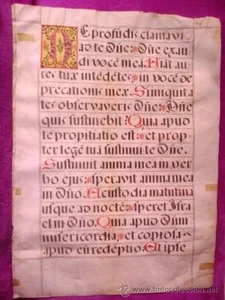 De profũdis clamavi
ad te Dñe: Dñe exau
di vocē meã. Fiat au
res tuæ intēdētes: in vocē de
precationis mex. Si iniquita
tes observaveris Dñe: Dñe
quis sustinebit. Quia apud
te propitiatio est: et prop
ter legē tuã sustinui te Dñe.
Sustinuit anima mea in ver
bo ejus: speravit anima mea
in Dño. A custodia matutina
usque ad noctē: speret Isra
el in Dño. Quia apud Dñm
misericordia: et copiosa
apud eũ redēptio. Et ipse
www.todocoleccion.net